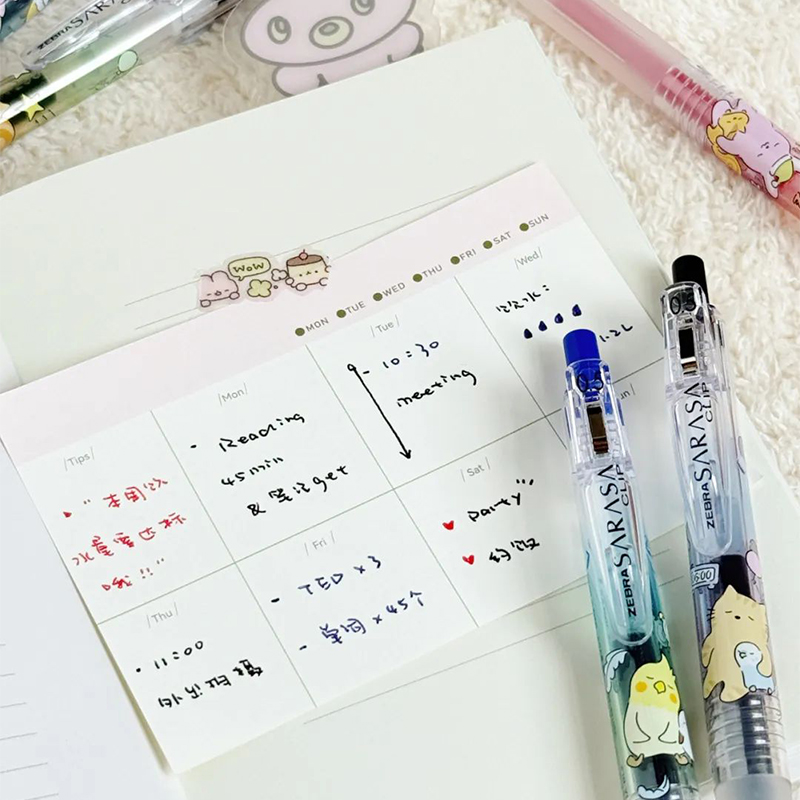 WOW
MON TUE WED THU FRI SAT SUN
/Tips/
"本周饮
水量要达标
哦!!"
/Mon/
- Reading
45min
& 笔记get
/Tue/
- 10:30
meeting
/Wed/
饮水:
1.2L
/Thu/
· 11:00
外出
/Fri/
- TED ×3
- 单词×45个
/Sat/
party
约饭
un/
0.5
ZEBRA SARASA CLIP
0.5
ZEBRA SARASA CLIP
ZEBRA SARASA